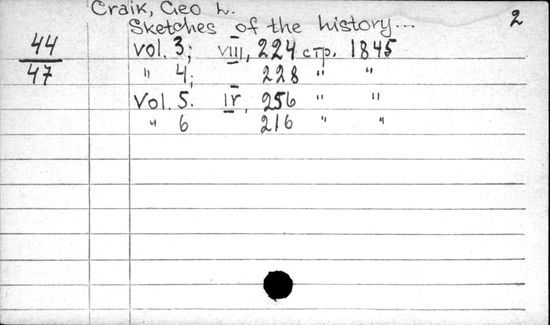 Craik, Geo L.
Sketches of the history... 2
44 Vol. 3; VIII, 224 стр. 1845
47 " 4; 228 " "
Vol. 5. IV, 256 " "
" 6 216 " "